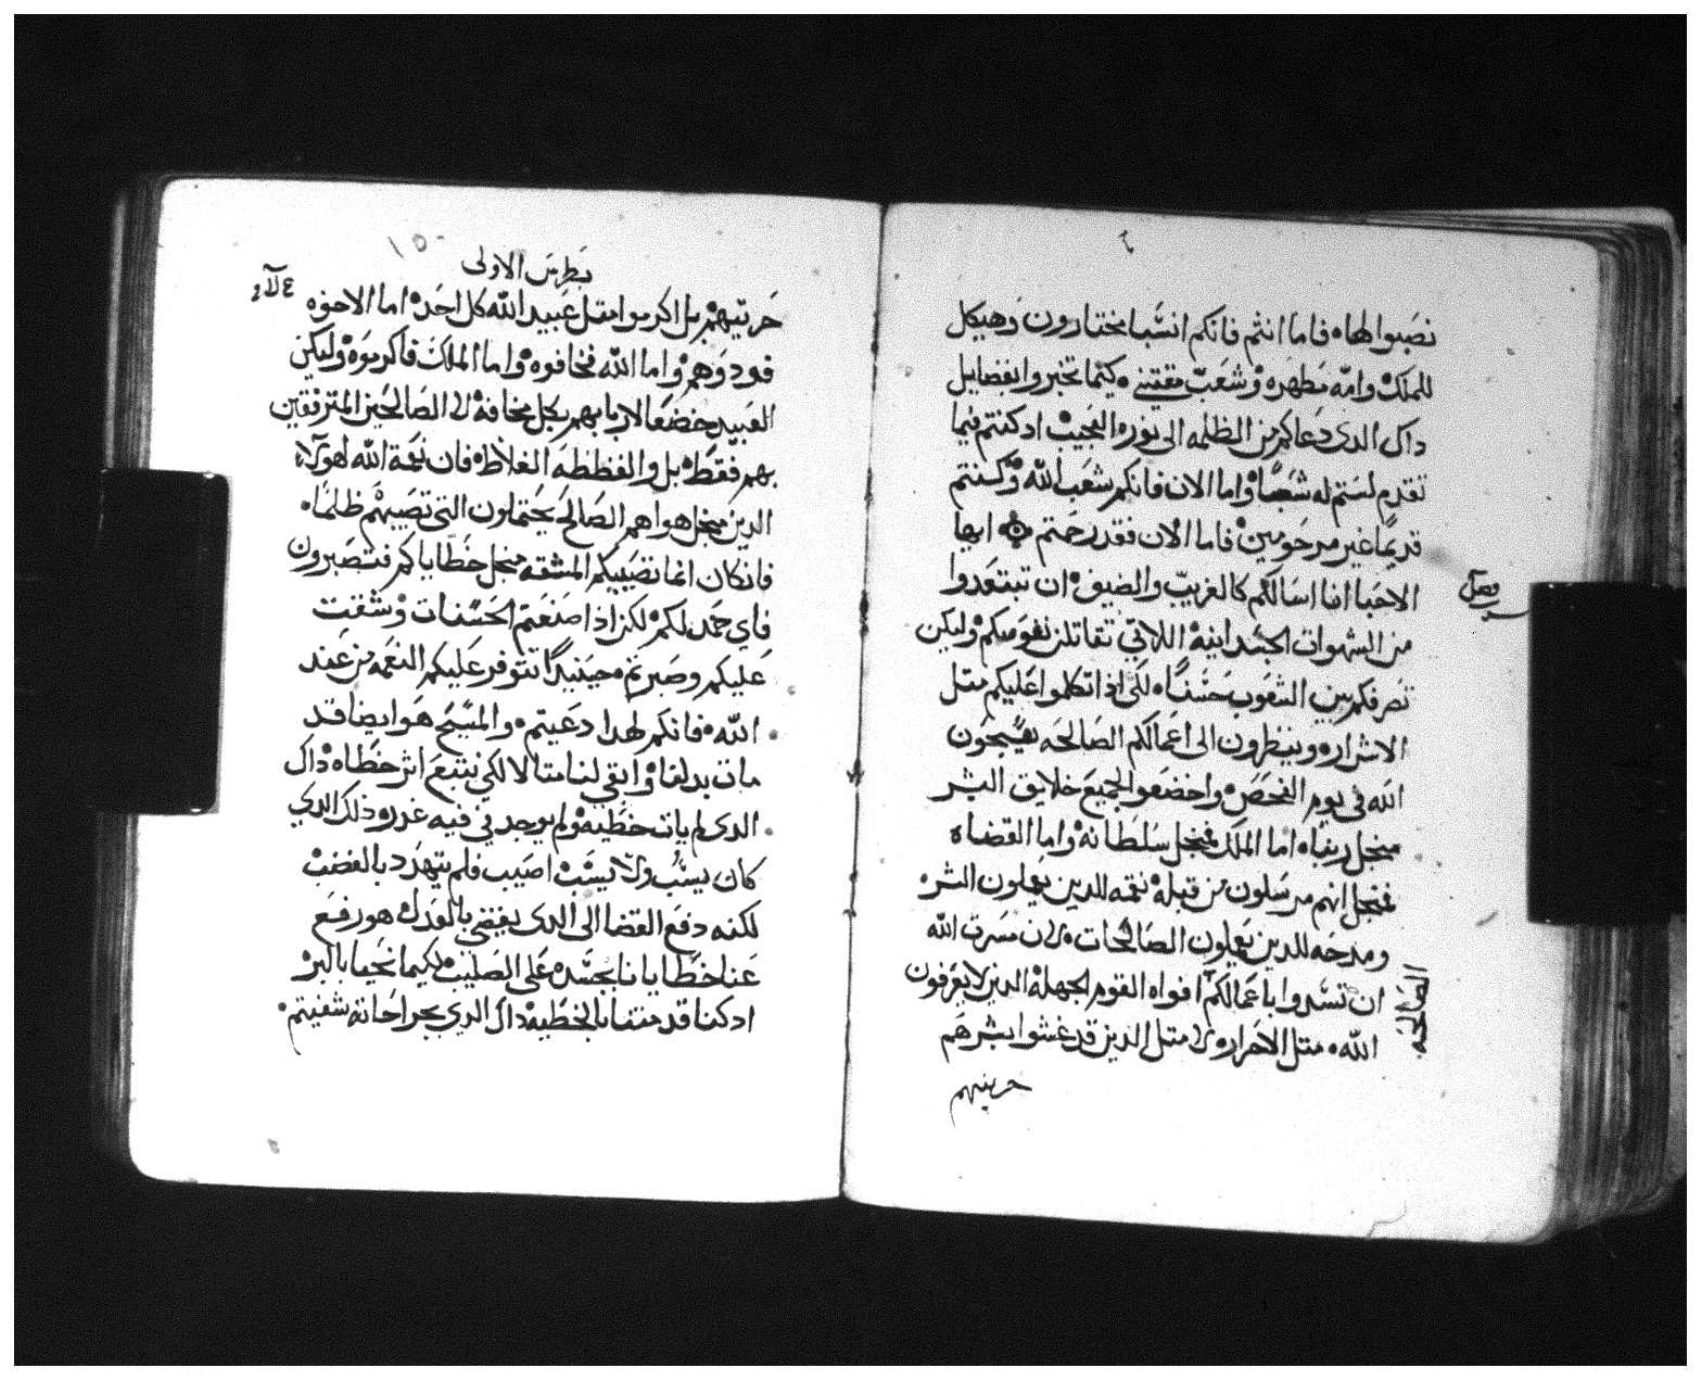 نصبوا لها فاما انتم فانكم انسبا مختارون وهيكل
للملك وامه مطهره وشعب مقتني كيما تخبروا بفضايل
داك الدى دعاكم من الظلمه الى نوره العجيب اد كنتم فيما
تقدم لستم له شعبا واما الان فانكم شعب الله وكنتم
قديما غير مرحومين فاما الان فقد رحمتم ايها
الاحبا انا اسالكم كالغريب والضيف ان تبتعدوا
من الشهوات الجسدانيه اللاتي تقاتلن نفوسكم وليكن
تصرفكم بين الشعوب حسنا لكي اذا تكلموا عليكم متل
الاشرار وينظرون الى اعمالكم الصالحه يسبحون
الله في يوم الفحص واخضعوا لجميع خلايق البشر
منجل ربنا اما الملك فمنجل سلطانه واما القضاه
فمنجل انهم مرسلون من قبله نقمه للدين يعملون الشر
ومدحه للدين يعملون الصالحات لان مسرت الله
ان تسدوا باعمالكم افواه القوم الجهله الدين لا يعرفون
الصالحه
الله متل الاحرار لا متل الدين قد غشوا بشرهم
حريتهم
بطرس الاولى
حريتهم بل اكرموا متل عبيد الله كل احد اما الاخوه
فودوهم واما الله فخافوه واما الملك فاكرموه وليكن
العبيد خضعا لاربابهم بكل مخافة لا الصالحين المترفقين
بهم فقط بل والفظظه الغلاظ فان نعمة الله لهولاء
الدين منجل هواهم الصالح يحتملون التي تصيبهم ظلما
فان كان انما تصيبكم المشقه منجل خطاياكم فتصبرون
فاي حمد لكم لكن اذا صنعتم الحسنات وشقت
عليكم وصبرتم حينيدا تتوفر عليكم النعمه من عند
الله فانكم لهدا دعيتم والمسيح هو ايضا قد
مات بدلنا وابقى لنا متالا لكي نتبع اتر خطاه داك
الدى لم يات خطيه ولم يوجد في فيه غدر ذلك الدي
كان يسب ولا يسب اصيب فلم يتهدد بالغضب
لكنه دفع القضا الى الدى يقضي بالعدل هو رفع
عنا خطايانا بجسده على الصليب لكيما نحيا بالبر
اد كنا قد متنا بالخطيه داك الدي بجراحاته شفيتم